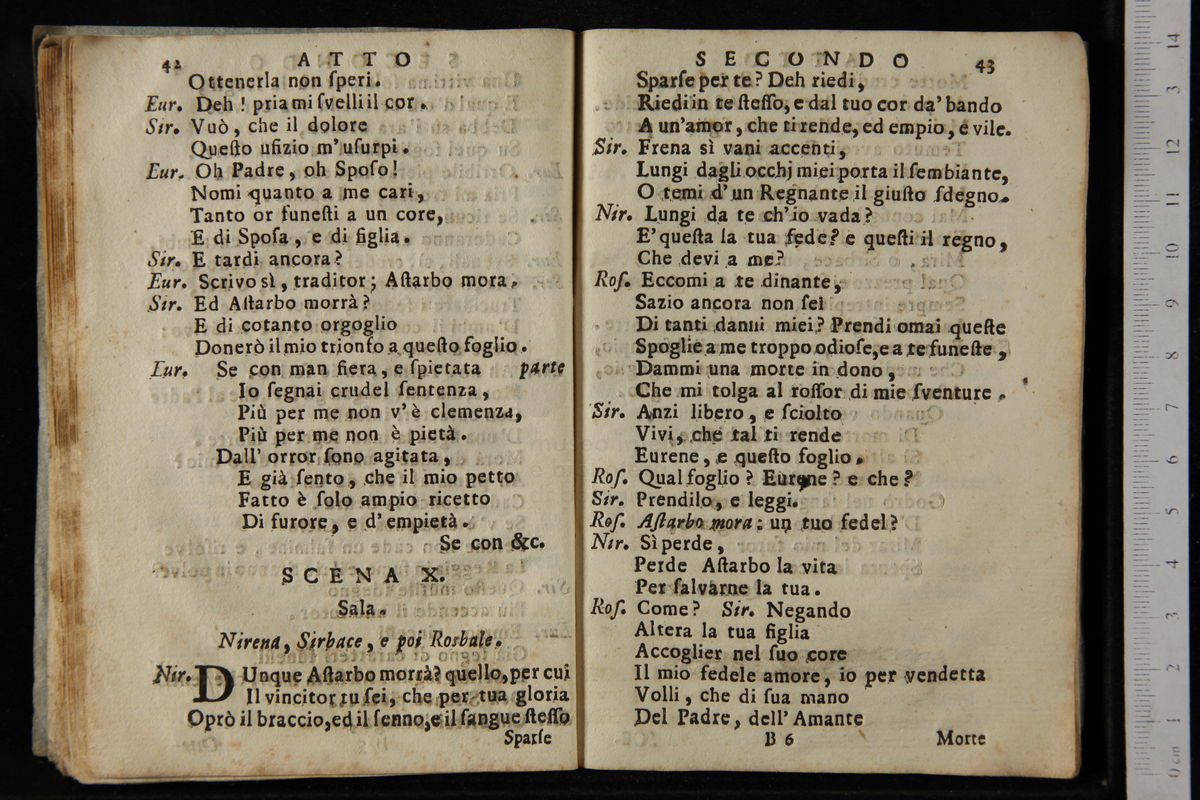 42 ATTO
Ottenerla non ſperi.
Eur. Deh! pria mi ſvelli il cor.
Sir. Vuò, che il dolore
Queſto ufizio m'uſurpi.
Eur. Oh Padre, oh Spoſo!
Nomi quanto a me cari,
Tanto or funeſti a un core,
E di Spoſa, e di figlia.
Sir. E tardi ancora?
Eur. Scrivo sì, traditor; Aſtarbo mora.
Sir. Ed Aſtarbo morrà?
E di cotanto orgoglio
Donerò il mio trionfo a queſto foglio.
Eur. Se con man fiera, e ſpietata parte
Io ſegnai crudel ſentenza,
Più per me non v'è clemenza,
Più per me non è pietà.
Dall' orror ſono agitata,
E già ſento, che il mio petto
Fatto è ſolo ampio ricetto
Di furore, e d' empietà.
Se con &c.
SCENA X.
Sala.
Nirena, Sirbace, e poi Rosbale.
Nir. DUnque Aſtarbo morrà? quello, per cui
Il vincitor tu ſei, che per tua gloria
Oprò il braccio, ed il ſenno, e il ſangue ſteſſo
Sparſe
SECONDO 43
Sparſe per te? Deh riedi,
Riedi in te ſteſſo, e dal tuo cor da' bando
A un'amor, che ti rende, ed empio, e vile.
Sir. Frena sì vani accenti,
Lungi dagli occhj miei porta il ſembiante,
O temi d' un Regnante il giuſto ſdegno.
Nir. Lungi da te ch'io vada?
E' queſta la tua fede? e queſti il regno,
Che devi a me?
Roſ. Eccomi a te dinante,
Sazio ancora non ſei
Di tanti danni miei? Prendi omai queſte
Spoglie a me troppo odioſe, e a te funeſte,
Dammi una morte in dono,
Che mi tolga al roſſor di mie ſventure.
Sir. Anzi libero, e ſciolto
Vivi, che tal ti rende
Eurene, e queſto foglio.
Roſ. Qual foglio? Eurene? e che?
Sir. Prendilo, e leggi.
Roſ. Aſtarbo mora: un tuo fedel?
Nir. Sì perde,
Perde Aſtarbo la vita
Per ſalvarne la tua.
Roſ. Come? Sir. Negando
Altera la tua figlia
Accoglier nel ſuo core
Il mio fedele amore, io per vendetta
Volli, che di ſua mano
Del Padre, dell' Amante
B 6 Morte
14
13
12
11
10
9
8
7
6
5
4
3
2
1
0 cm